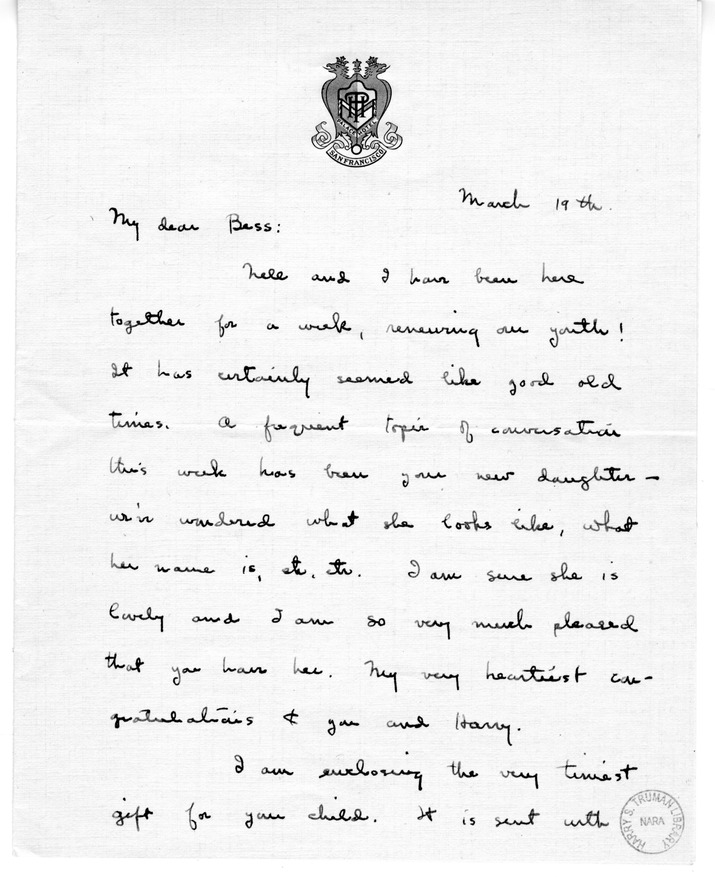 PALACE HOTEL
SAN FRANCISCO
March 19th.
My dear Bess:
Nell and I have been here
together for a week, renewing our youth!
It has certainly seemed like good old
times. A frequent topic of conversation
this week has been your new daughter –
we've wondered what she looks like, what
her name is, etc. etc. I am sure she is
lovely and I am so very much pleased
that you have her. My very heartiest con-
gratulations to you and Harry.
I am enclosing the very tiniest
gift for your child. It is sent with
HARRY S. TRUMAN LIBRARY
NARA